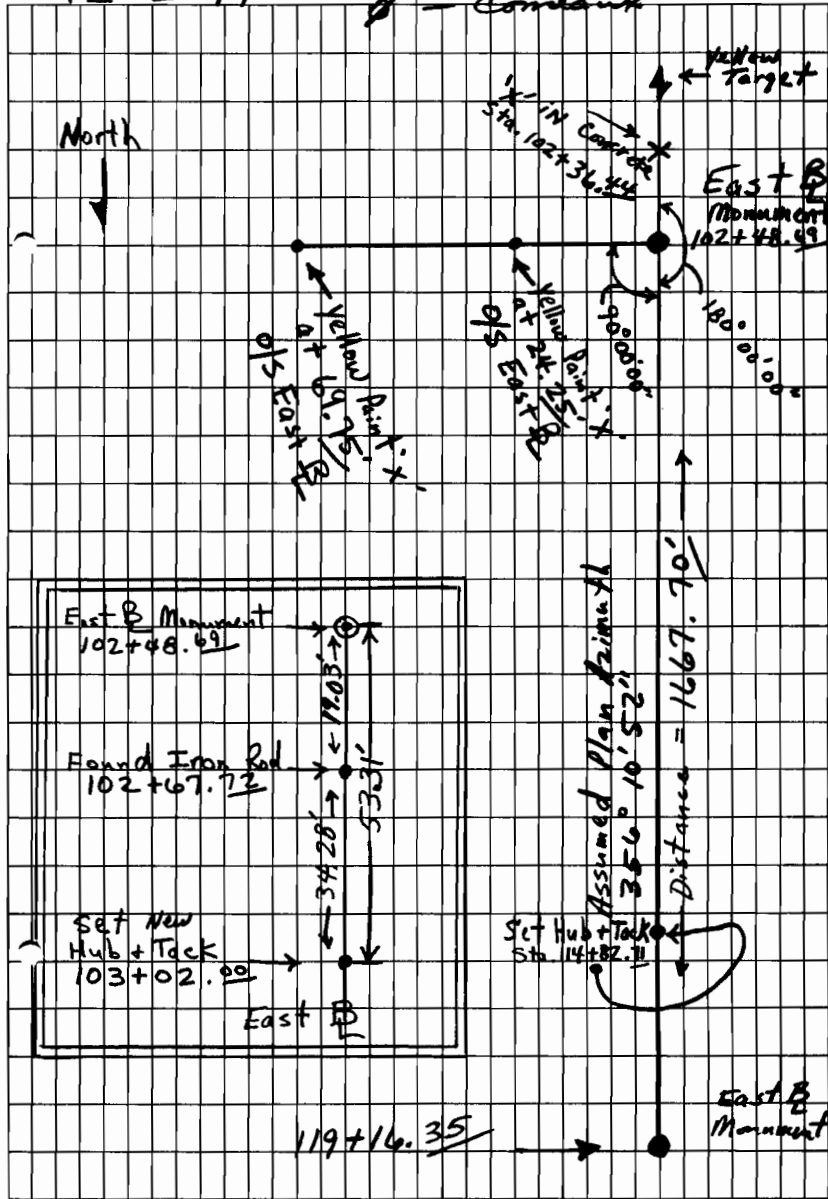 Yellow
Target
"X" in Concrete
Sta. 102+36.44
North
East BL
Monument
102+48.69
Yellow Paint 'X'
at 69.75'
o/s East BL
Yellow Paint 'X'
at 24.25'
o/s East BL
90°00'00"
180°00'00"
Assumed Plan Azimuth
356° 10' 52"
Distance = 1667.70'
East BL Monument
102+48.69
19.03'
53.31'
Found Iron Rod
102+67.72
34.28'
Set New
Hub + Tack
103+02.00
East BL
Set Hub + Tack
Sta. 114+82.71
East BL
Monument
119+16.35